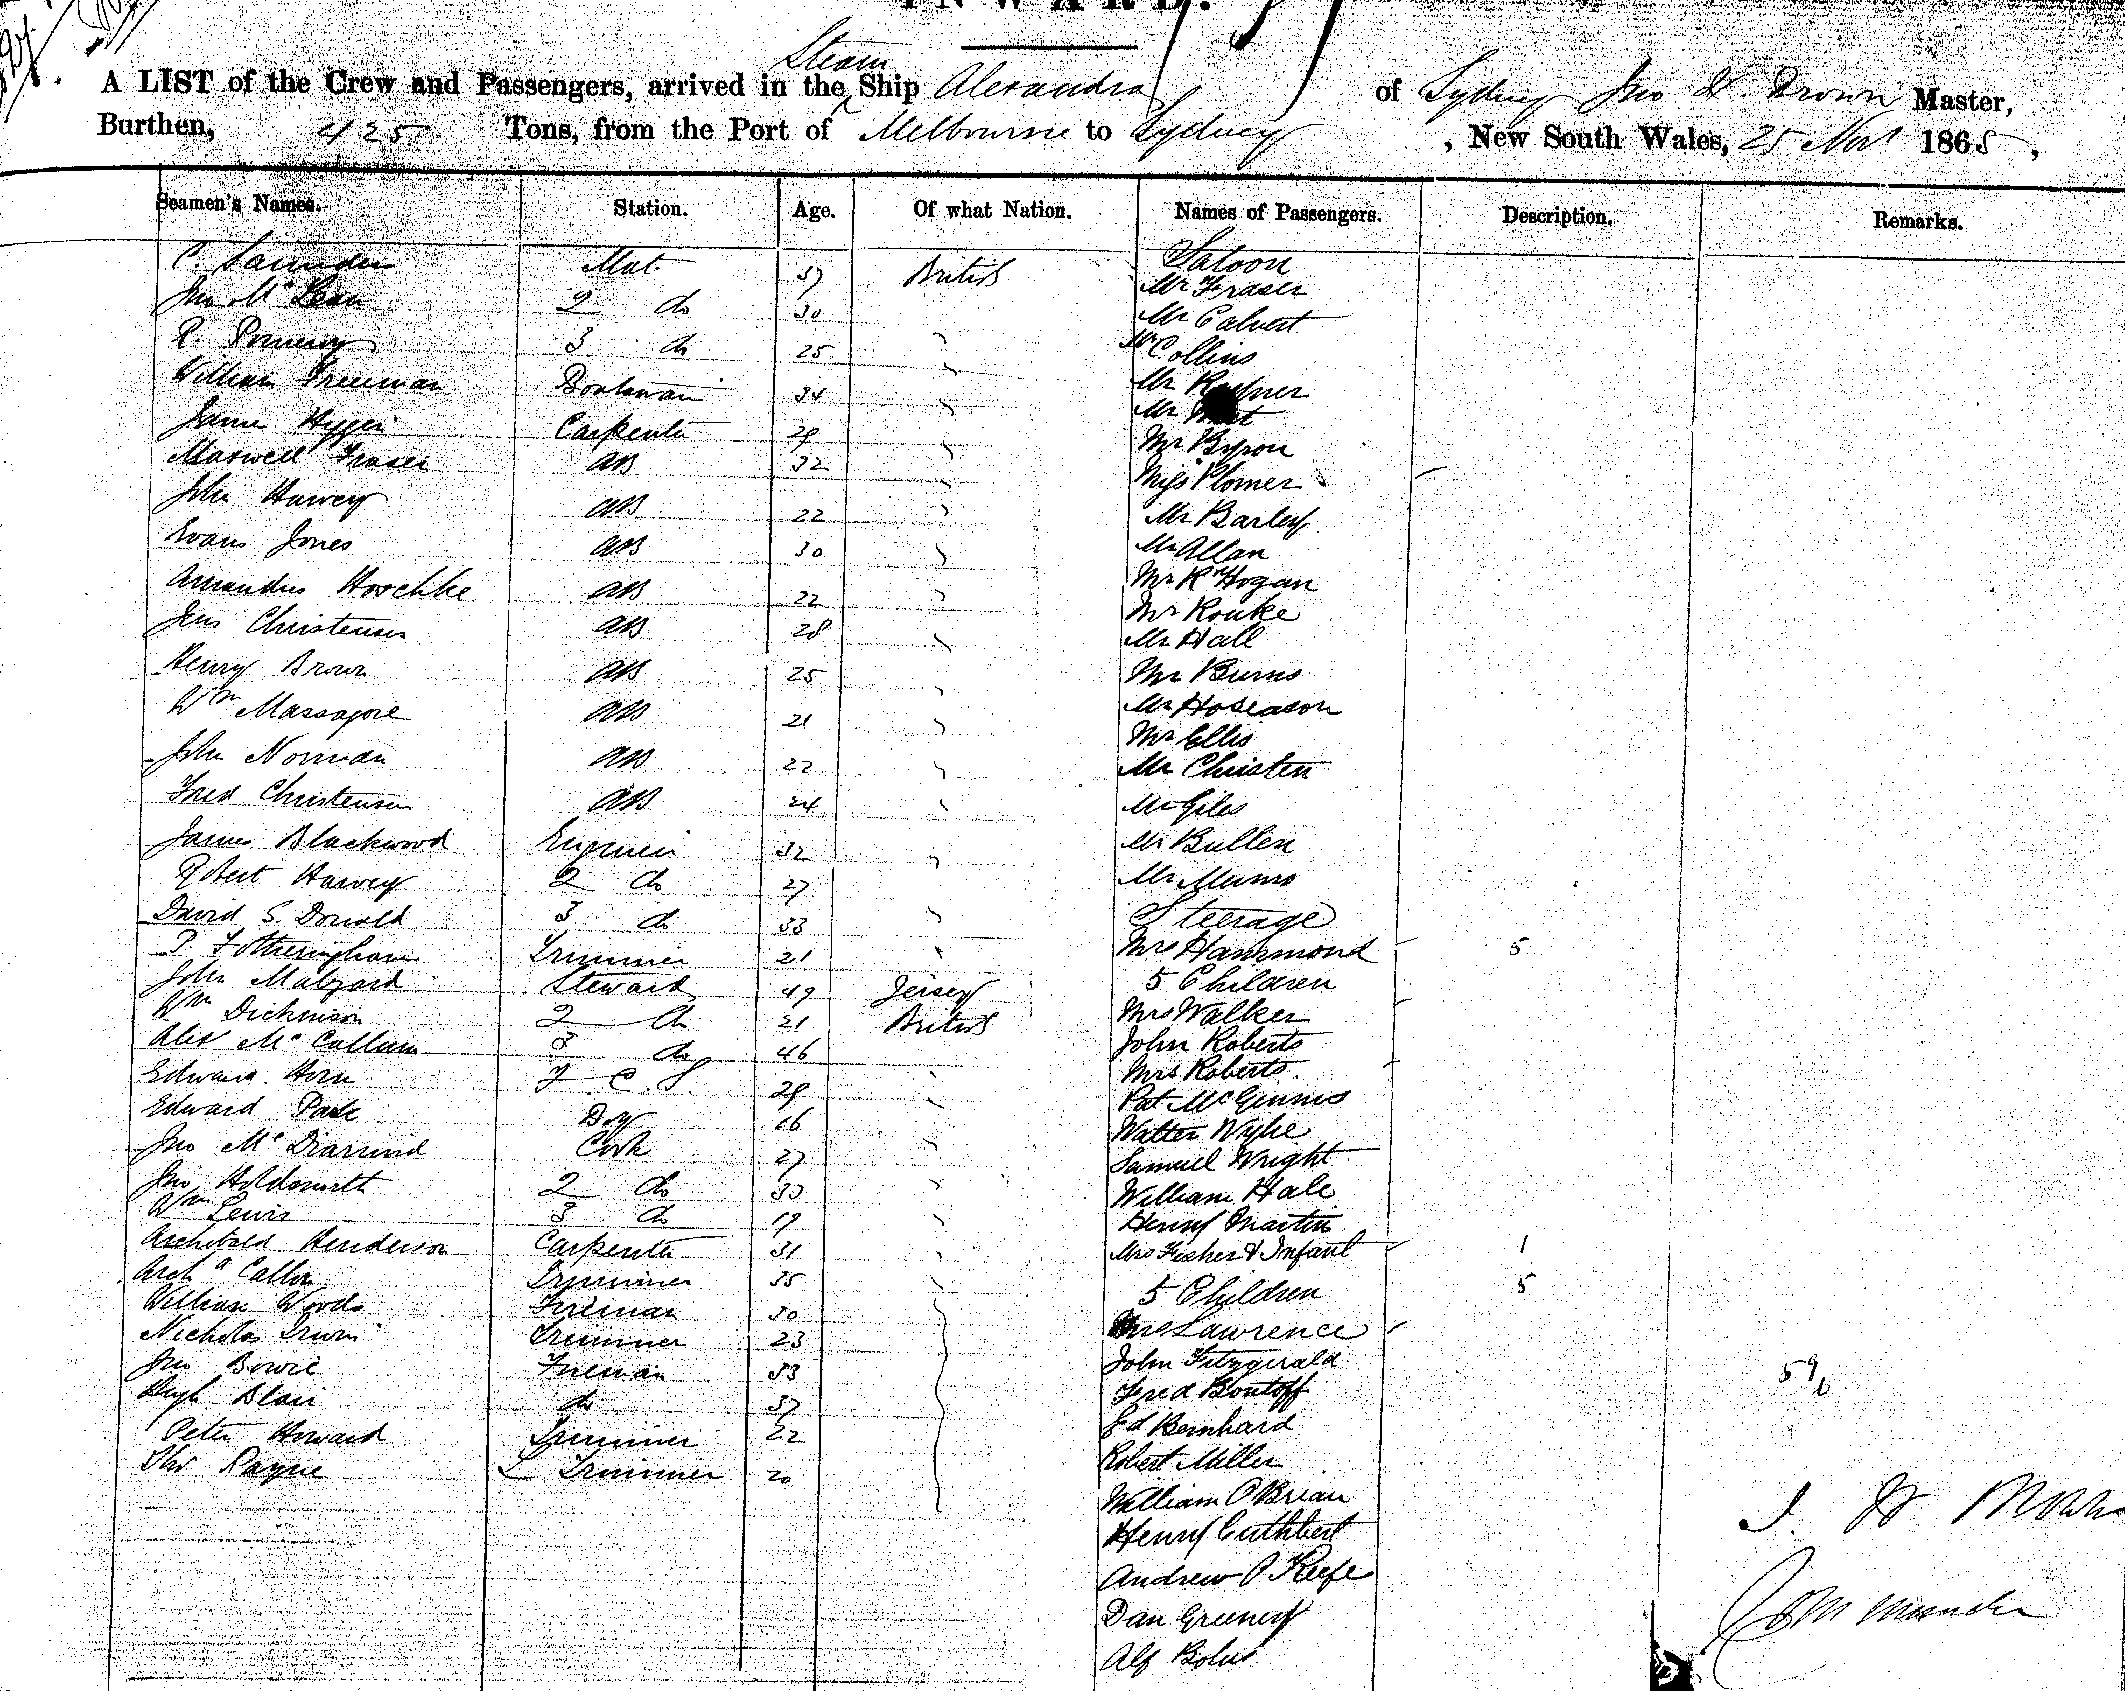 INWARD.
Steam
A LIST of the Crew and Passengers, arrived in the Ship Alexandra of Sydney Jno Brown Master,
Burthen, 425 Tons, from the Port of Melbourne to Sydney, New South Wales, 25 Nov 1865,
Seamen's Names. Station. Age. Of what Nation. Names of Passengers. Description. Remarks.
C. Saunders Mate 37 British Saloon
Jno McLean 2 do 30 Mr Fraser
Mr Calvert
R. Pomeroy 3 do 25 Mr Collins
William Freeman Boatswain 34 Mr
James 29 Mr
Carpenter Mr Byron
Maxwell Fraser AB 32 Miss Plomer
John Harvey AB 22 Mr Barley
Evans Jones AB 30 Mr Allan
Mr Hogan
Amandus Hoschke AB 22 Mr Rouke
Jens Christensen AB 28 Mr Hall
Henry Brown AB 25 Mr Burns
Wm AB 21 Mr Hoseason
Mr Ellis
John Norman AB 22 Mr Christen
Fred Christensen AB 24 Mr Giles
James Blackwood Engineer 32 Mr Bullen
Robert Harvey 2 do 27 Mr Munro
David S. Donald 3 do 33 Steerage
P. Fotheringham Trimmer 21 Mrs Hammond 5
John Malzard Steward 49 Jersey 5 Children
Wm Dickinson 2 do 21 British Mrs Walker
Alex McCallum 3 do 46 John Roberts
Edward Horn 29 Mrs Roberts
Pat McGinnis
Edward Boy 16 Walter Wylie
Jno McDiarmid Cook 27 Samuel Wright
Jno Holdsworth 2 do 33 William Hale
Wm Lewis 3 do 19 Henry Martin
Archibald Henderson Carpenter 31 Mrs Fisher & Infant 1
Archd Trimmer 35 5 Children 5
William Woods Fireman 30
Nicholas Irwin Trimmer 23 Mrs Lawrence
Jno Bowie Fireman 33 John Fitzgerald
Hugh Blair do 37 Fred Boutoff
Peter Howard Trimmer 22 Ed Bernhard
Thos Payne Trimmer 20 Robert Miller
William O'Brian
Henry Cuthbert
Andrew O'Keefe
Dan Greeney
Alf